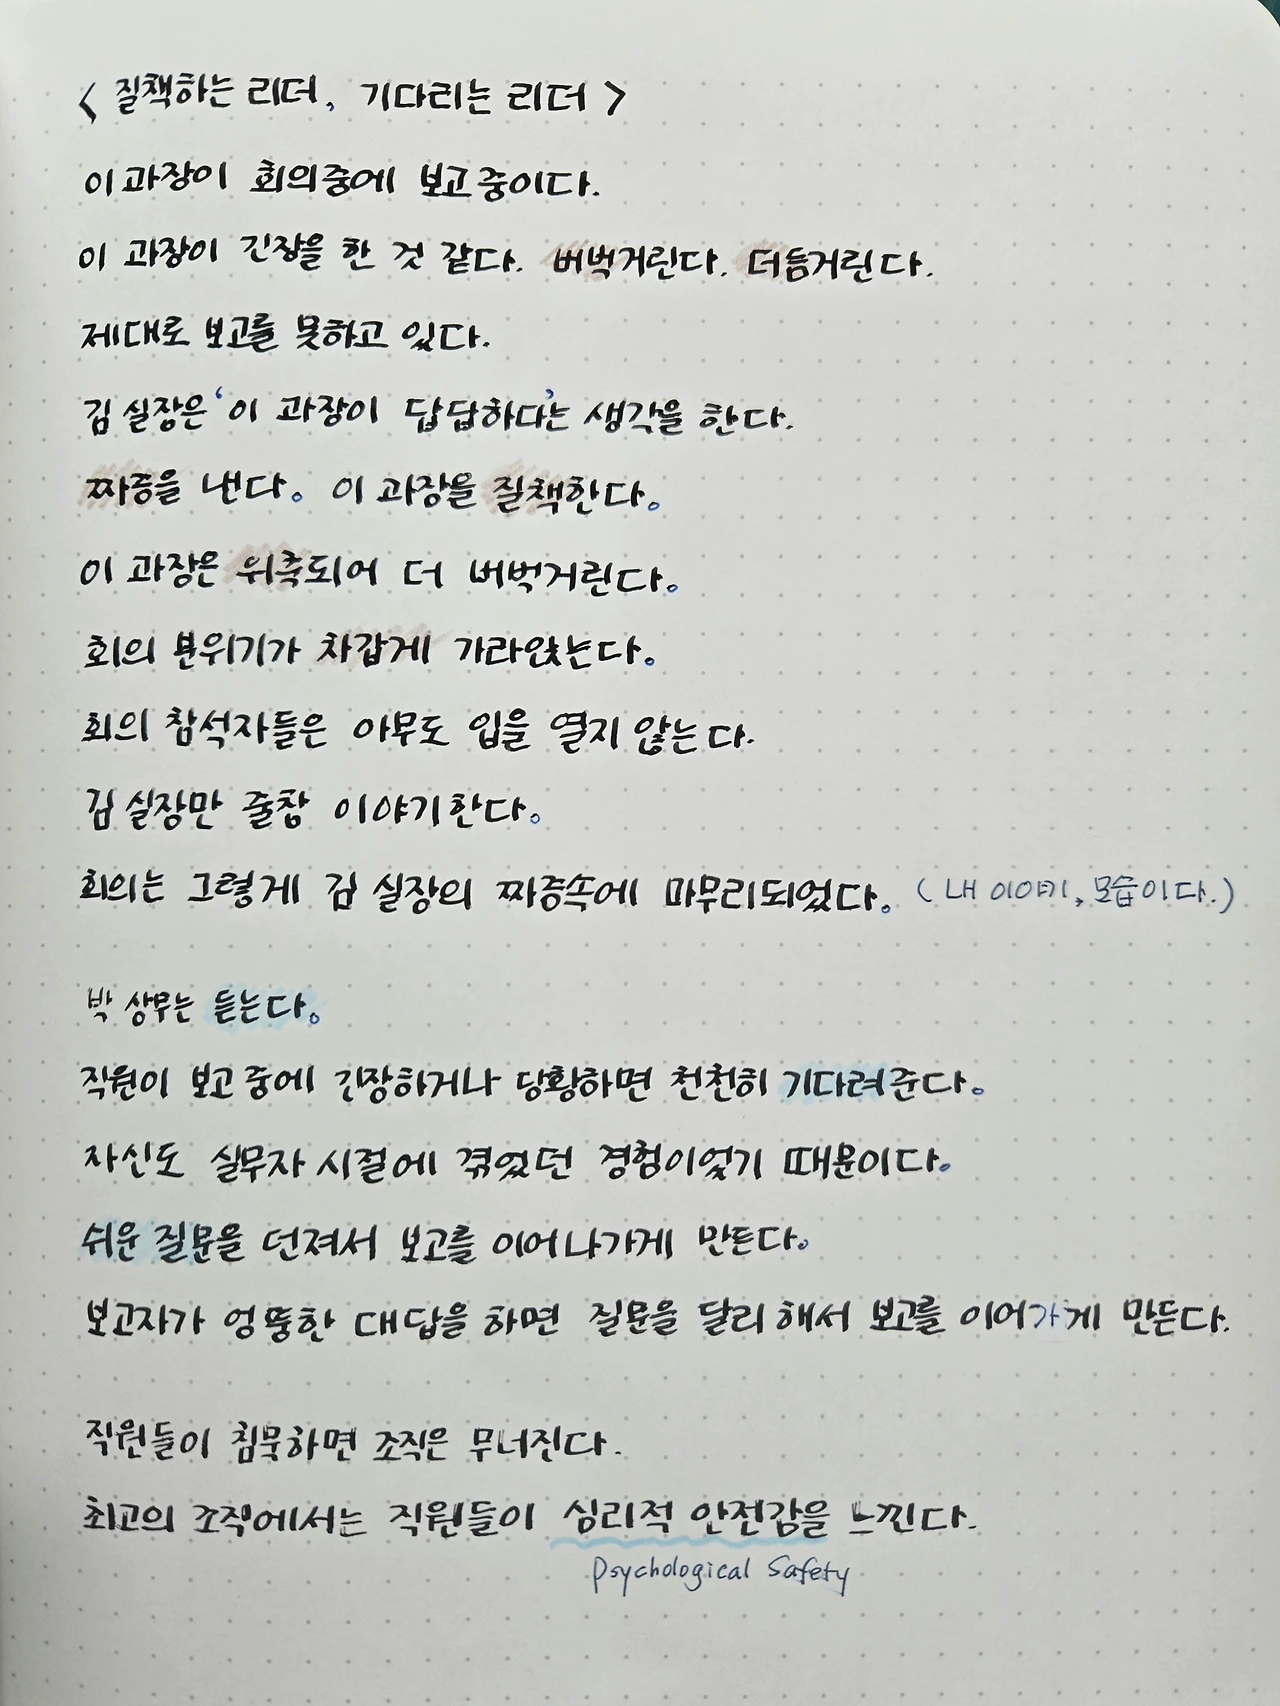 < 질책하는 리더, 기다리는 리더 >
이 과장이 회의중에 보고 중이다.
이 과장이 긴장을 한 것 같다. 버벅거린다. 더듬거린다.
제대로 보고를 못하고 있다.
김 실장은 '이 과장이 답답하다'는 생각을 한다.
짜증을 낸다. 이 과장을 질책한다.
이 과장은 위축되어 더 버벅거린다.
회의 분위기가 차갑게 가라앉는다.
회의 참석자들은 아무도 입을 열지 않는다.
김 실장만 줄창 이야기한다.
회의는 그렇게 김 실장의 짜증속에 마무리되었다. (내 이야기, 모습이다.)
박 상무는 듣는다.
직원이 보고 중에 긴장하거나 당황하면 천천히 기다려준다.
자신도 실무자 시절에 겪었던 경험이었기 때문이다.
쉬운 질문을 던져서 보고를 이어나가게 만든다.
보고자가 엉뚱한 대답을 하면 질문을 달리 해서 보고를 이어가게 만든다.
직원들이 침묵하면 조직은 무너진다.
최고의 조직에서는 직원들이 심리적 안전감을 느낀다.
Psychological Safety